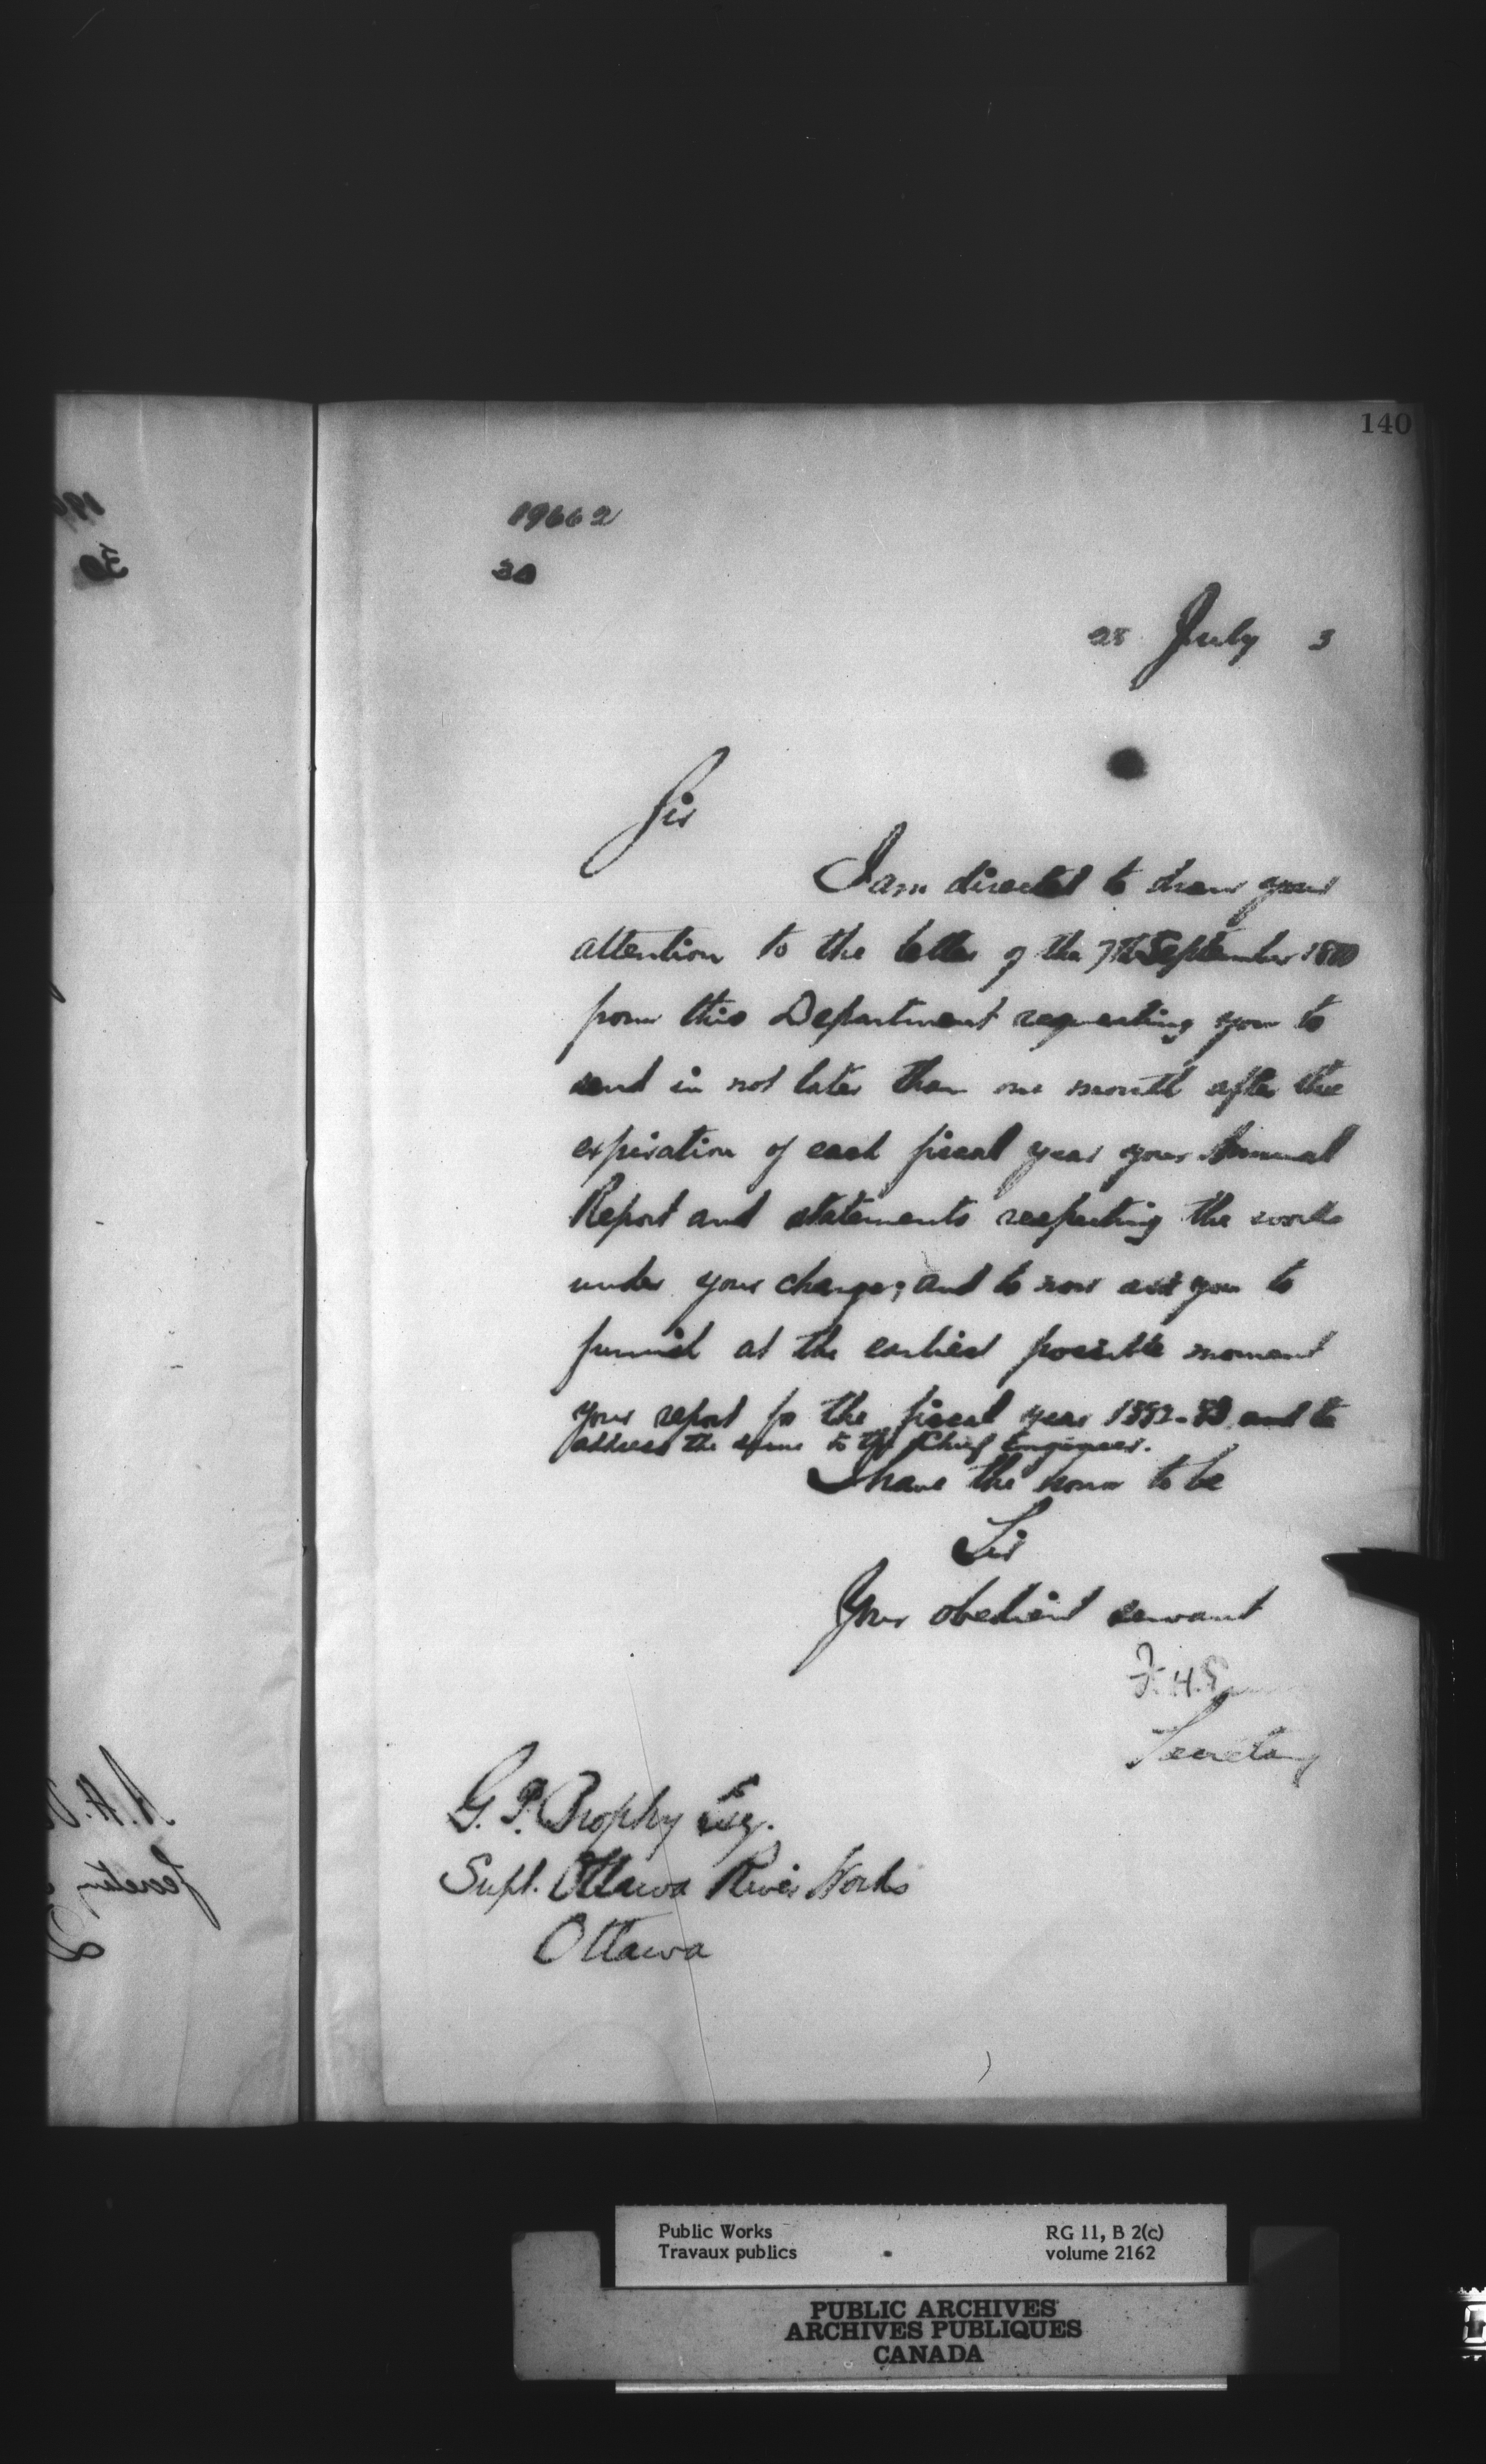 140
19662
30
28 July 3
Sir
I am directed to draw your
attention to the letter of the 7th September 1880
from this Department requesting you to
send in not later than one month after the
expiration of each fiscal year your Annual
Report and statements respecting the works
under your charge; and to now ask you to
furnish at the earliest possible moment
your report for the fiscal year 1882-83 and to
address the same to the Chief Engineer.
I have the honor to be
Sir
Your obedient servant
F. H. E
Secretary
G. P. Brophy Esq.
Supt. Ottawa River Works
Ottawa
Public Works RG 11, B 2(c)
Travaux publics volume 2162
PUBLIC ARCHIVES
ARCHIVES PUBLIQUES
CANADA